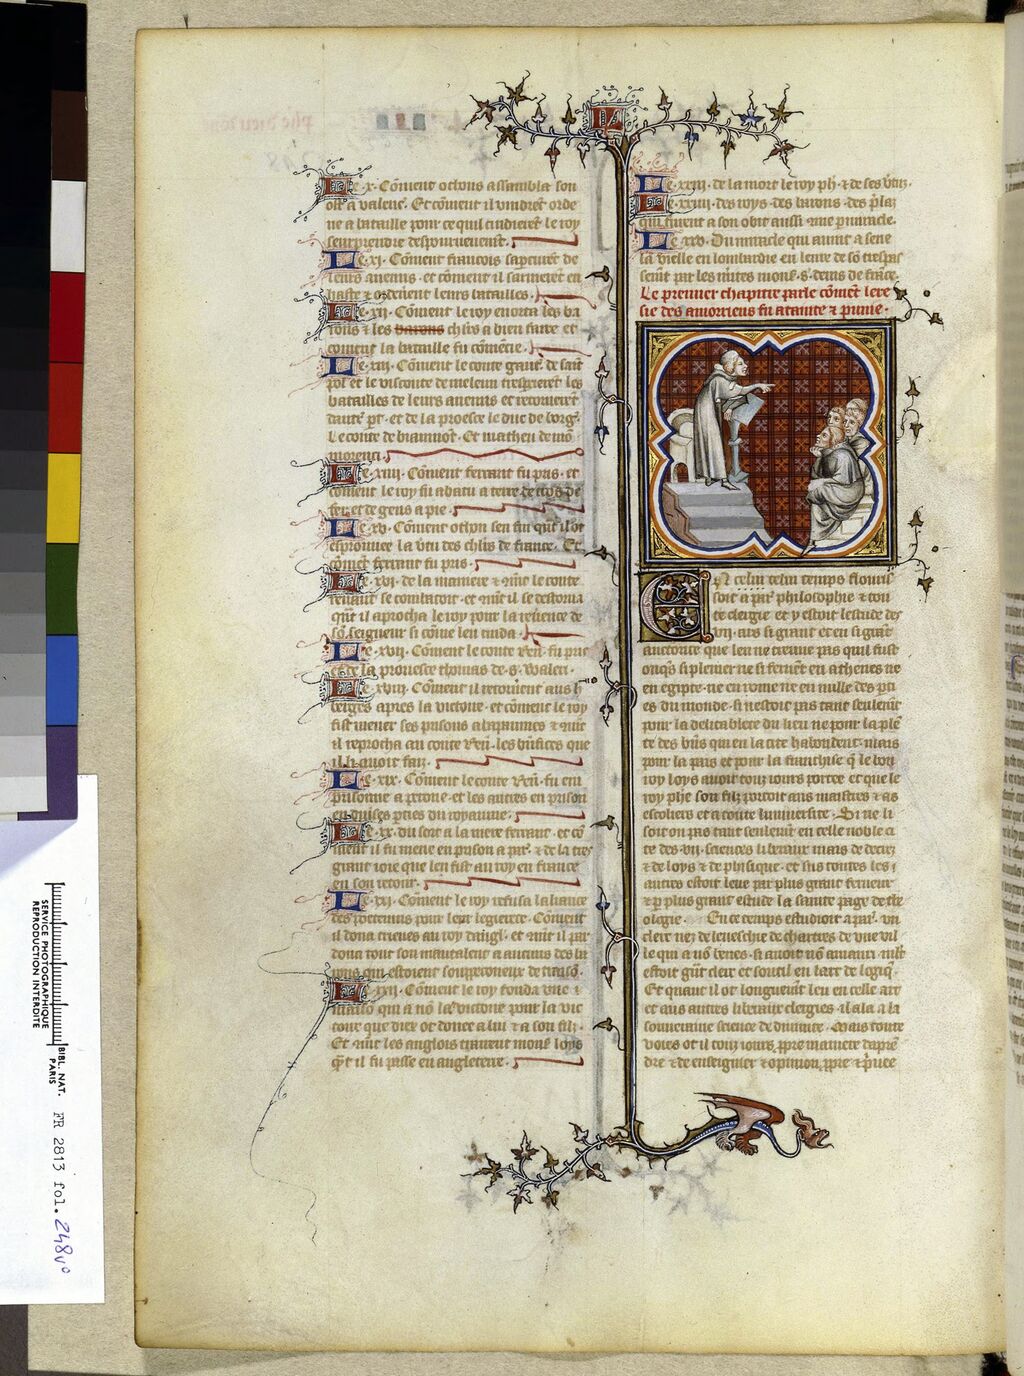 Le .x. Coment othons assambla son
ost a valenc. Et coment il vindrent orde
ne a bataille pour ce quil cuidierent le roy
seurprendre despourueuement.
Le .xi. Coment francois saperceurent de
leurs anemis. et coment il sarmerent en
haste & ordenerent leurs batailles.
Le .xii. Coment le roy enorta les ba
rons & les barons chlrs a bien faire et
coment la bataille fu comencie.
Le .xiii. Coment le conte gauc. de saint
pol et le visconte de meleun trespercent les
batailles de leurs anemis et retornerent
dautre pt. et de la proesce le duc de borg.
Le conte de biaumot. Et mathieu de mo
morenci.
Le .xiiii. Coment ferrant fu pris. et
coment le roy fu abatu a terre de cros de
fer et de gens a pie.
Le .xv. Coment othon sen fui quant il ot
esprouuee la vtu des chlrs de france. Et
coment ferrant fu pris.
Le .xvi. de la maniere & coment le conte
renaut se combatoit. et coment il se destorna
quant il aprocha le roy pour la reuerence de
son seigneur si come len cuida.
Le .xvii. Coment le conte Ren. fu pris
et de la prouesce thomas de .s. Waleri.
Le .xviii. Coment il retornerent aus h
berges apres la victoire. et coment le roy
fist mener ses prisons a bapaumes & coment
il reprocha au conte Ren. les benefices que
il li auoit faiz.
Le .xix. Coment le conte Ren. fu em
prisonne a peronne. et les autres en prison
en diuerses pties du royaume.
Le .xx. du sort a la mere ferrant. et co
ment il fu mene en prison a par. & de la tres
grant ioie que len fist au roy en france
en son retour.
Le .xxi. Coment le roy refusa laliance
des poiteuins pour leur legierece. Coment
il dona trieues au roy dangl. et coment il par
dona tout son mautalent a aucuns des ba
rons qui estoient soupeconeux de traison.
Le .xxii. Coment le roy fonda une
maison qui a non la victoire pour la vic
toire que diex ot donee a lui & a son filz.
Et coment les anglois traitent mons. loys
quant il fu passe en angleterre.
Le .xxiii. de la mort le roy ph. & de ses vtuz.
Le .xxiiii. des roys. des barons. des plaz
qui furent a son obit aussi come p miracle.
Le .xxv. Du miracle qui auint a sene
la vielle en lombardie en leure de son trespas
sement par les merites mons. s. denis de france.
Le premier chapitre parle coment lere
sie des amorriens fu atainte & punie.
En celui temps flouris
soit a par. philosophie & tou
te clergie et y estoit lestude des
.vii. ars si grant et en si grant
auctorite que len ne treuue pas quil fust
onques si plenier ne si feruent en athenes ne
en egipte. ne en rome ne en nulle des pti
es du monde. si nestoit pas tant seulement
pour la delictablete du lieu ne pour la plente
te des biens qui en la cite habondent. mais
pour la pais et pour la franchise que le bon
roy loys auoit touz iours portee et que le
roy phe son filz portoit aus maistres & as
escoliers et a toute luniuersite. Si ne li
soit on pas tant seulement en celle noble ci
te des .vii. sciences liberaux mais de decrez
& de loys & de phisique. et sus toutes les
autres estoit leue par plus grant ferueur
& p plus grant estude la sainte page de the
ologie. En ce temps estudioit a par. un
clerc nez de leueschie de chartres de une vil
le qui a non benes. si auoit non amauri. cilz
estoit grant clerc et soutil en lart de logique.
Et quant il ot longuement leu en celle art
et aus autres liberaux clergies. il ala a la
souueraine science de diuinite. Mais toute
voies ot il touz iours ppre maniere dapren
dre & de enseignier & opinion ppre & priuee
SERVICE PHOTOGRAPHIQUE
REPRODUCTION INTERDITE
BIBL. NAT.
PARIS
FR 2813 fol. 248v°